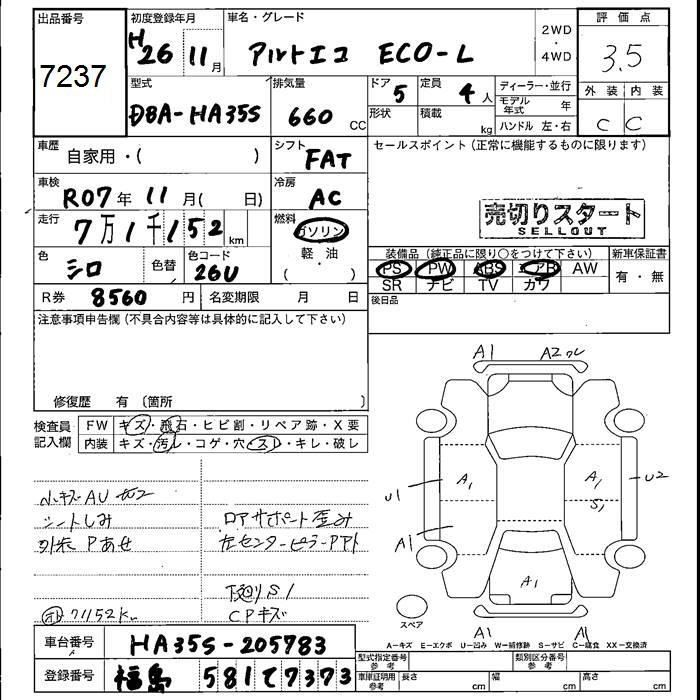 出品番号 初度登録年月 車名・グレード 2WD ・ 4WD 評価点
7237 H26 11月 アルトエコ ECO-L 3.5
型式 排気量 ドア 定員 ディーラー・並行 外装 内装
DBA-HA35S 660 CC 5 4人 モデル年式 年 C C
形状 積載 kg ハンドル 左・右
車歴 自家用・( ) シフト FAT セールスポイント (正常に機能するものに限ります)
車検 R07年 11月( 日) 冷房 AC
走行 7万1千152 km 燃料 ガソリン 軽・油 売切りスタート
SELLOUT
色 シロ 色替 色コード 26U 装備品 (純正品に限り○をつけて下さい) 新車保証書
PS PW ABS エアB AW 有・無
SR ナビ TV カワ
R券 8560円 名変期限 月 日 後日品
注意事項申告欄 (不具合内容等は具体的に記入して下さい)
修復歴 有 (箇所 )
検査員記入欄 FW キズ・飛石・ヒビ割・リペア跡・X要
内装 キズ・汚レ・コゲ・穴・スレ・キレ・破レ
A1 A2
小キズAU
シートしみ ロアサポート歪み
P 左センターピラー
下廻りS1
71152km CPキズ
U1 A1 A1 A1 S1 U2
A1
A1 A1
スペア
A-キズ E-エクボ U-凹み W-補修跡 S-サビ C-腐食 XX-交換済
車台番号 HA35S-205783 型式指定番号 参考 類別区分番号 参考
登録番号 福島 581 て 7373 車庫証明用 参考 長さ cm 幅 cm 高さ cm